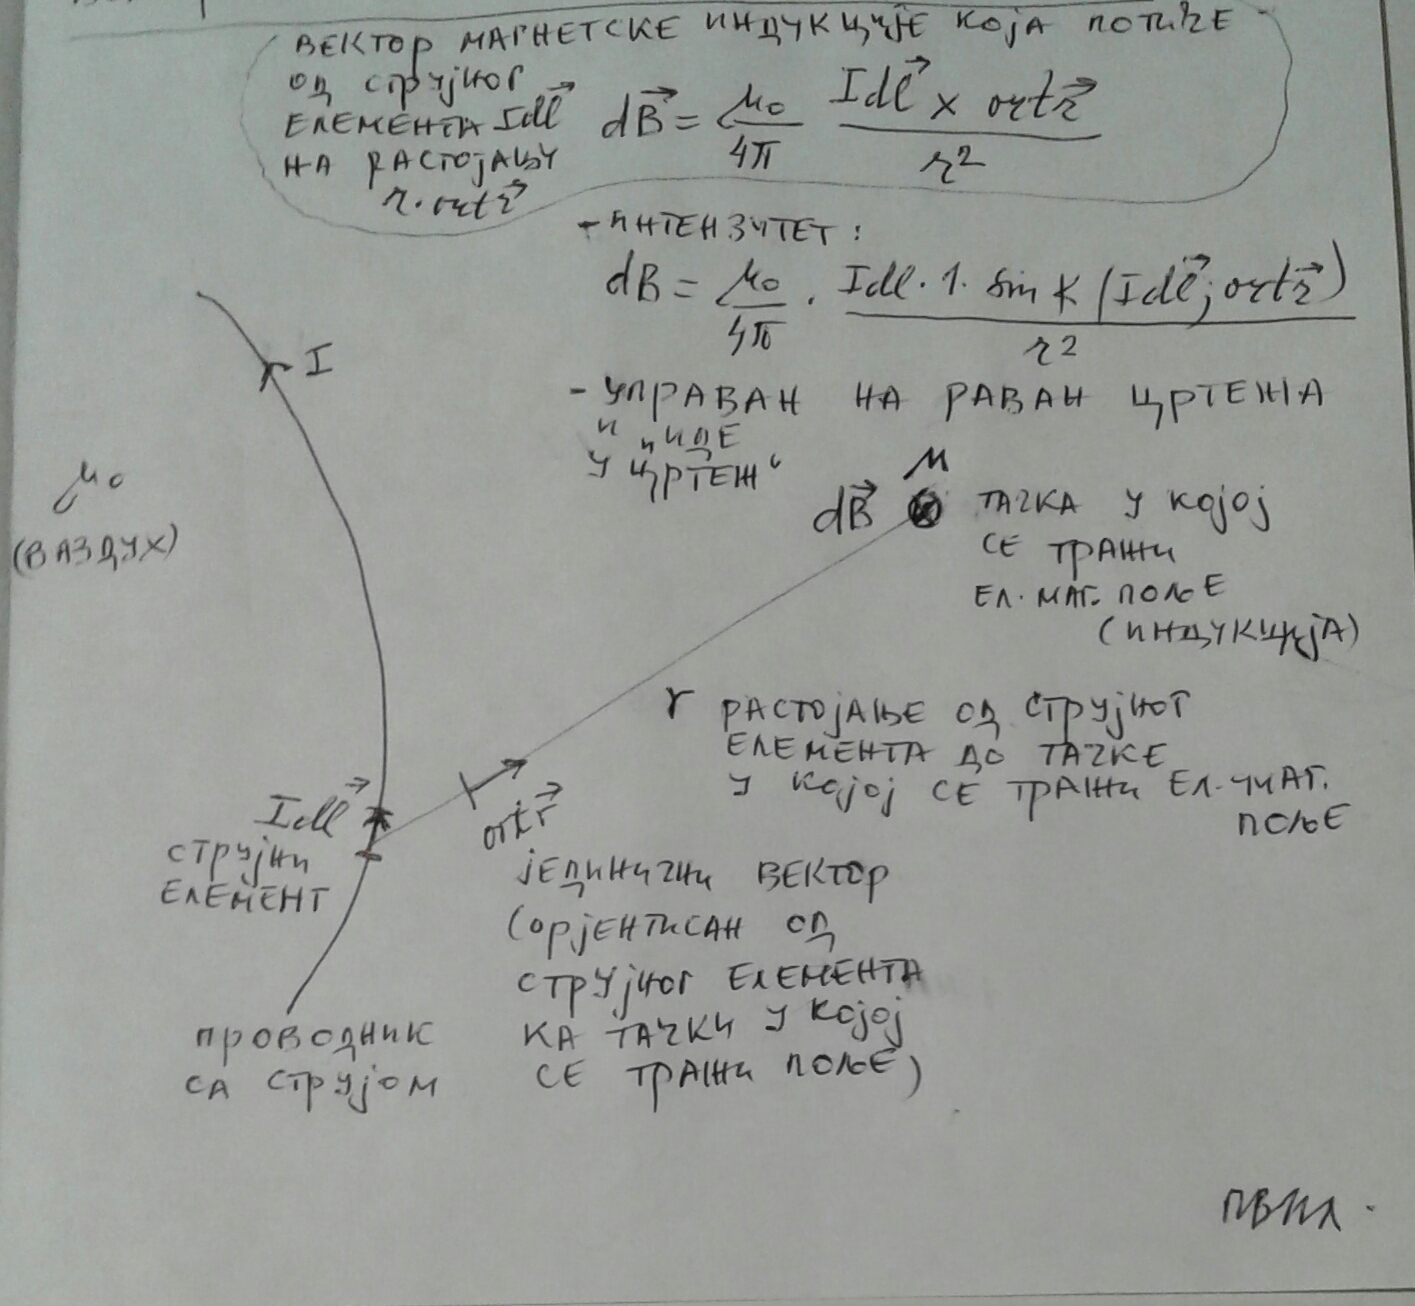 ВЕКТОР МАГНЕТСКЕ ИНДУКЦИЈЕ КОЈА ПОТИЧЕ
ОД СТРУЈНОГ
ЕЛЕМЕНТА Idl⃗
НА РАСТОЈАЊУ
r·ort r⃗
dB⃗ = μ₀/4π · (Idl⃗ x ort r⃗)/r²
-ИНТЕНЗИТЕТ:
dB = μ₀/4π · (Idl·1·sin∢(Idl⃗; ort r⃗))/r²
- УПРАВАН НА РАВАН ЦРТЕЖА
И „ИДЕ
У ЦРТЕЖ“
I
μ₀
(ВАЗДУХ)
M
dB⃗ ⊗ ТАЧКА У КОЈОЈ
СЕ ТРАЖИ
ЕЛ. МАГ. ПОЉЕ
(ИНДУКЦИЈА)
r РАСТОЈАЊЕ ОД СТРУЈНОГ
ЕЛЕМЕНТА ДО ТАЧКЕ
У КОЈОЈ СЕ ТРАЖИ ЕЛ. МАГ.
ПОЉЕ
Idl⃗
СТРУЈНИ
ЕЛЕМЕНТ
ort r⃗
ЈЕДИНИЧНИ ВЕКТОР
(ОРЈЕНТИСАН ОД
СТРУЈНОГ ЕЛЕМЕНТА
КА ТАЧКИ У КОЈОЈ
СЕ ТРАЖИ ПОЉЕ)
ПРОВОДНИК
СА СТРУЈОМ